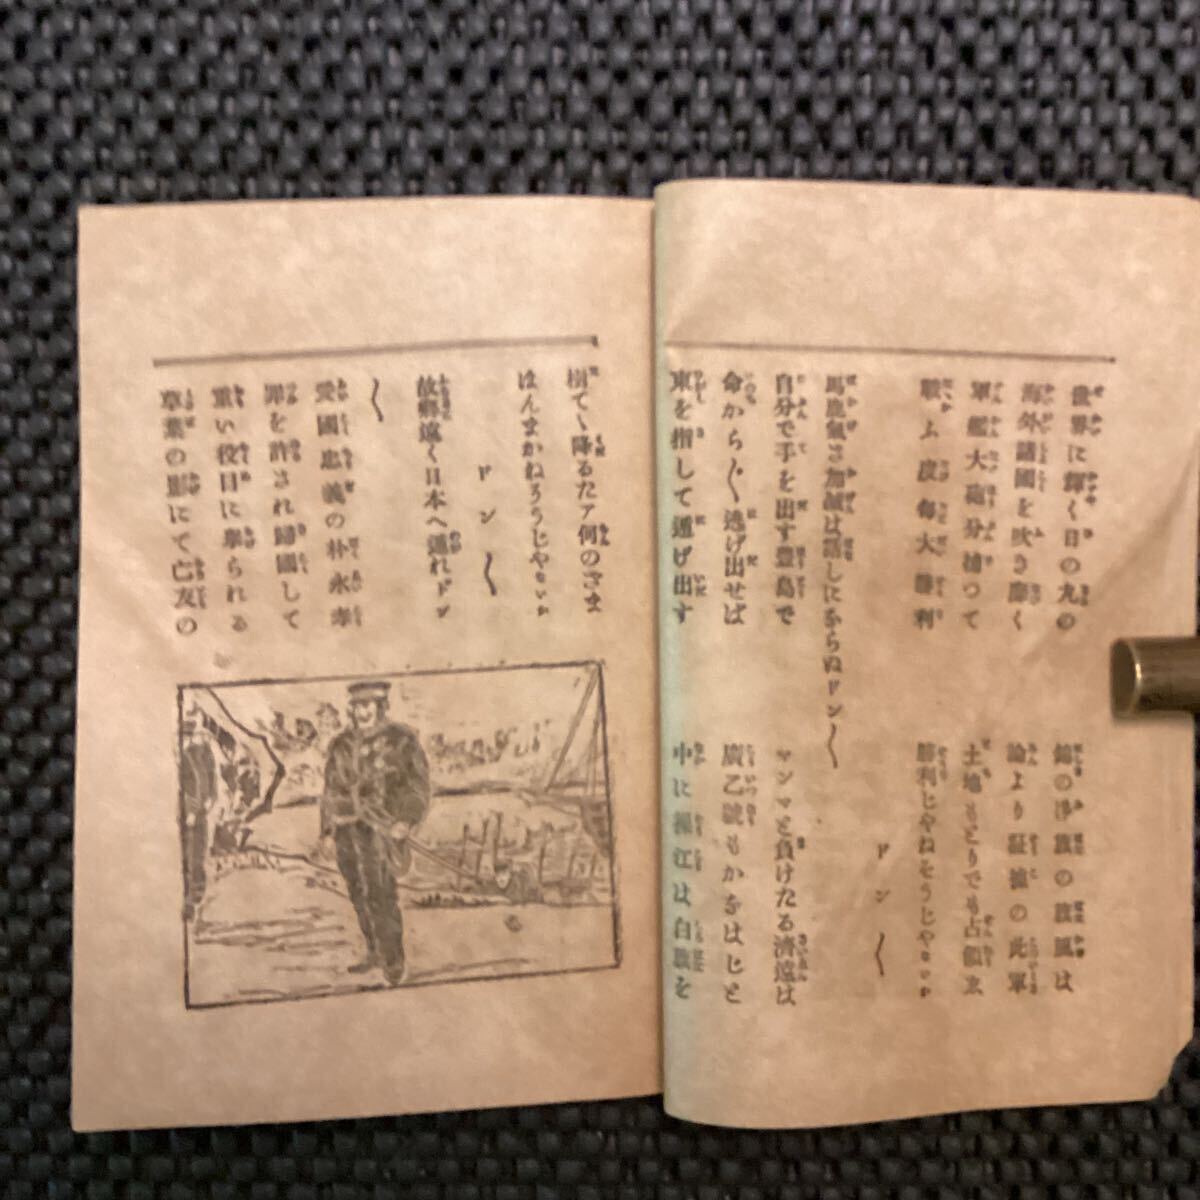 世界に輝く日の丸の
錦の御旗の旗風は
海外諸國を吹き靡く
論より証據の此軍
軍艦大砲分捕つて
土地もとりでも占領し
戰ふ度毎大勝利
勝利じやねせうじやないか
ドン〱
馬鹿氣さ加減は話しにならぬドン〱
自分で手を出す豊島で
マンマと負けたる済遠は
命から〲逃げ出せば
廣乙號もかなはじと
東を指して逃げ出す
中に操江は白旗を
樹てゝ降るたア何のさま
はんまかねろうじやないか
ドン〱
故郷遠く日本へ逃れドン
〱
愛國忠義の朴永孝
罪を許され歸國して
重い役目に擧られる
草葉の影にて亡友の